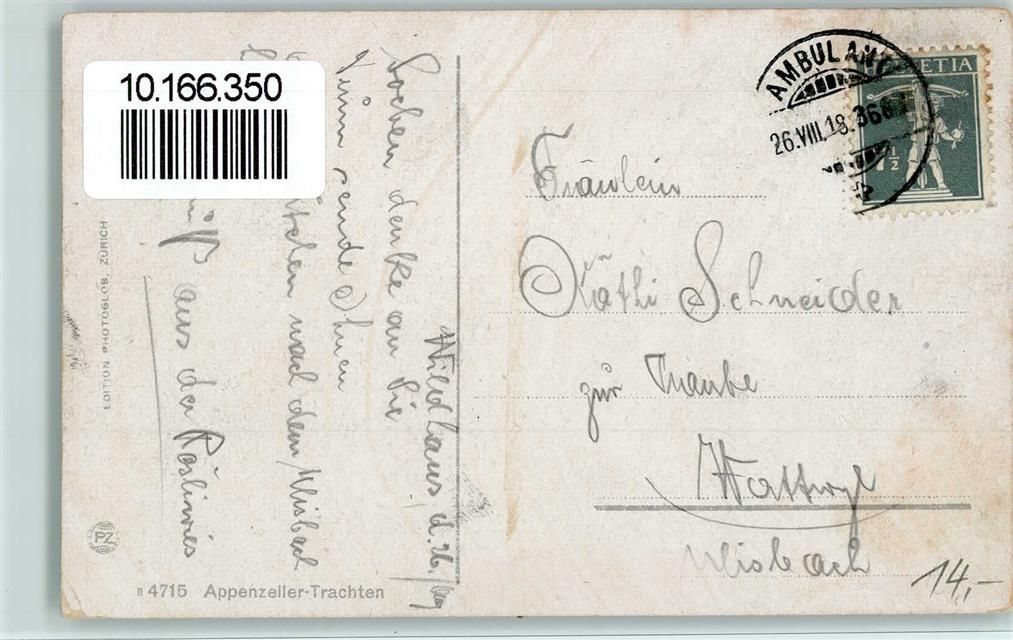 10.166.350
AMBULANT
26.VIII.18.
HELVETIA
7 1/2
Wildhaus, d. 26/Aug
Soeben denke an Sie
sende Ihnen
nach dem Ulisbach
aus der Röslinwies
Fräulein
Käthi Schneider
zur Traube
Wattwyl
Ulisbach
14,-
EDITION PHOTOGLOB, ZÜRICH
PZ
n 4715 Appenzeller-Trachten